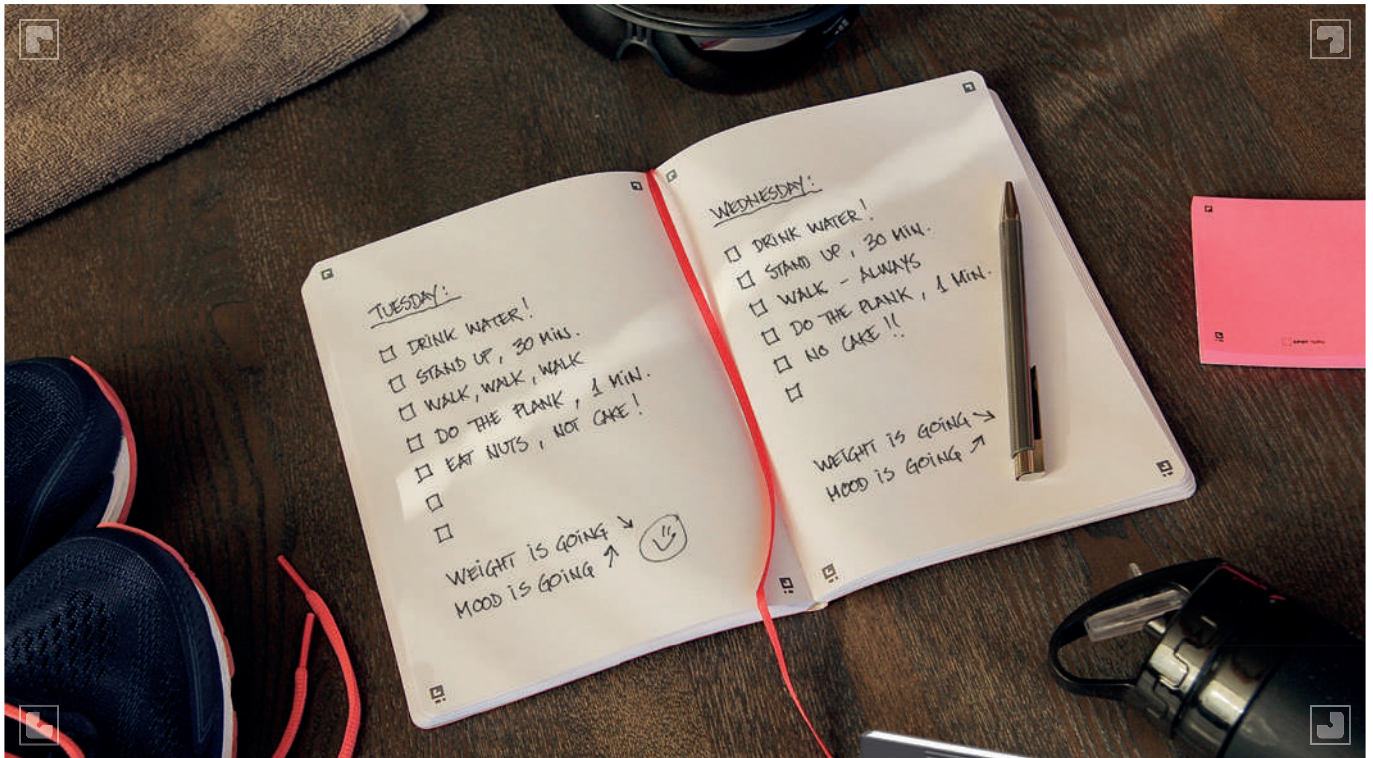 TUESDAY:
☐ DRINK WATER!
☐ STAND UP, 30 MIN.
☐ WALK, WALK, WALK
☐ DO THE PLANK, 1 MIN.
☐ EAT NUTS, NOT CAKE!
☐
☐
WEIGHT IS GOING ↘
MOOD IS GOING ↗
WEDNESDAY:
☐ DRINK WATER!
☐ STAND UP, 30 MIN.
☐ WALK - ALWAYS
☐ DO THE PLANK, 1 MIN.
☐ NO CAKE!!
☐
WEIGHT IS GOING ↘
MOOD IS GOING ↗